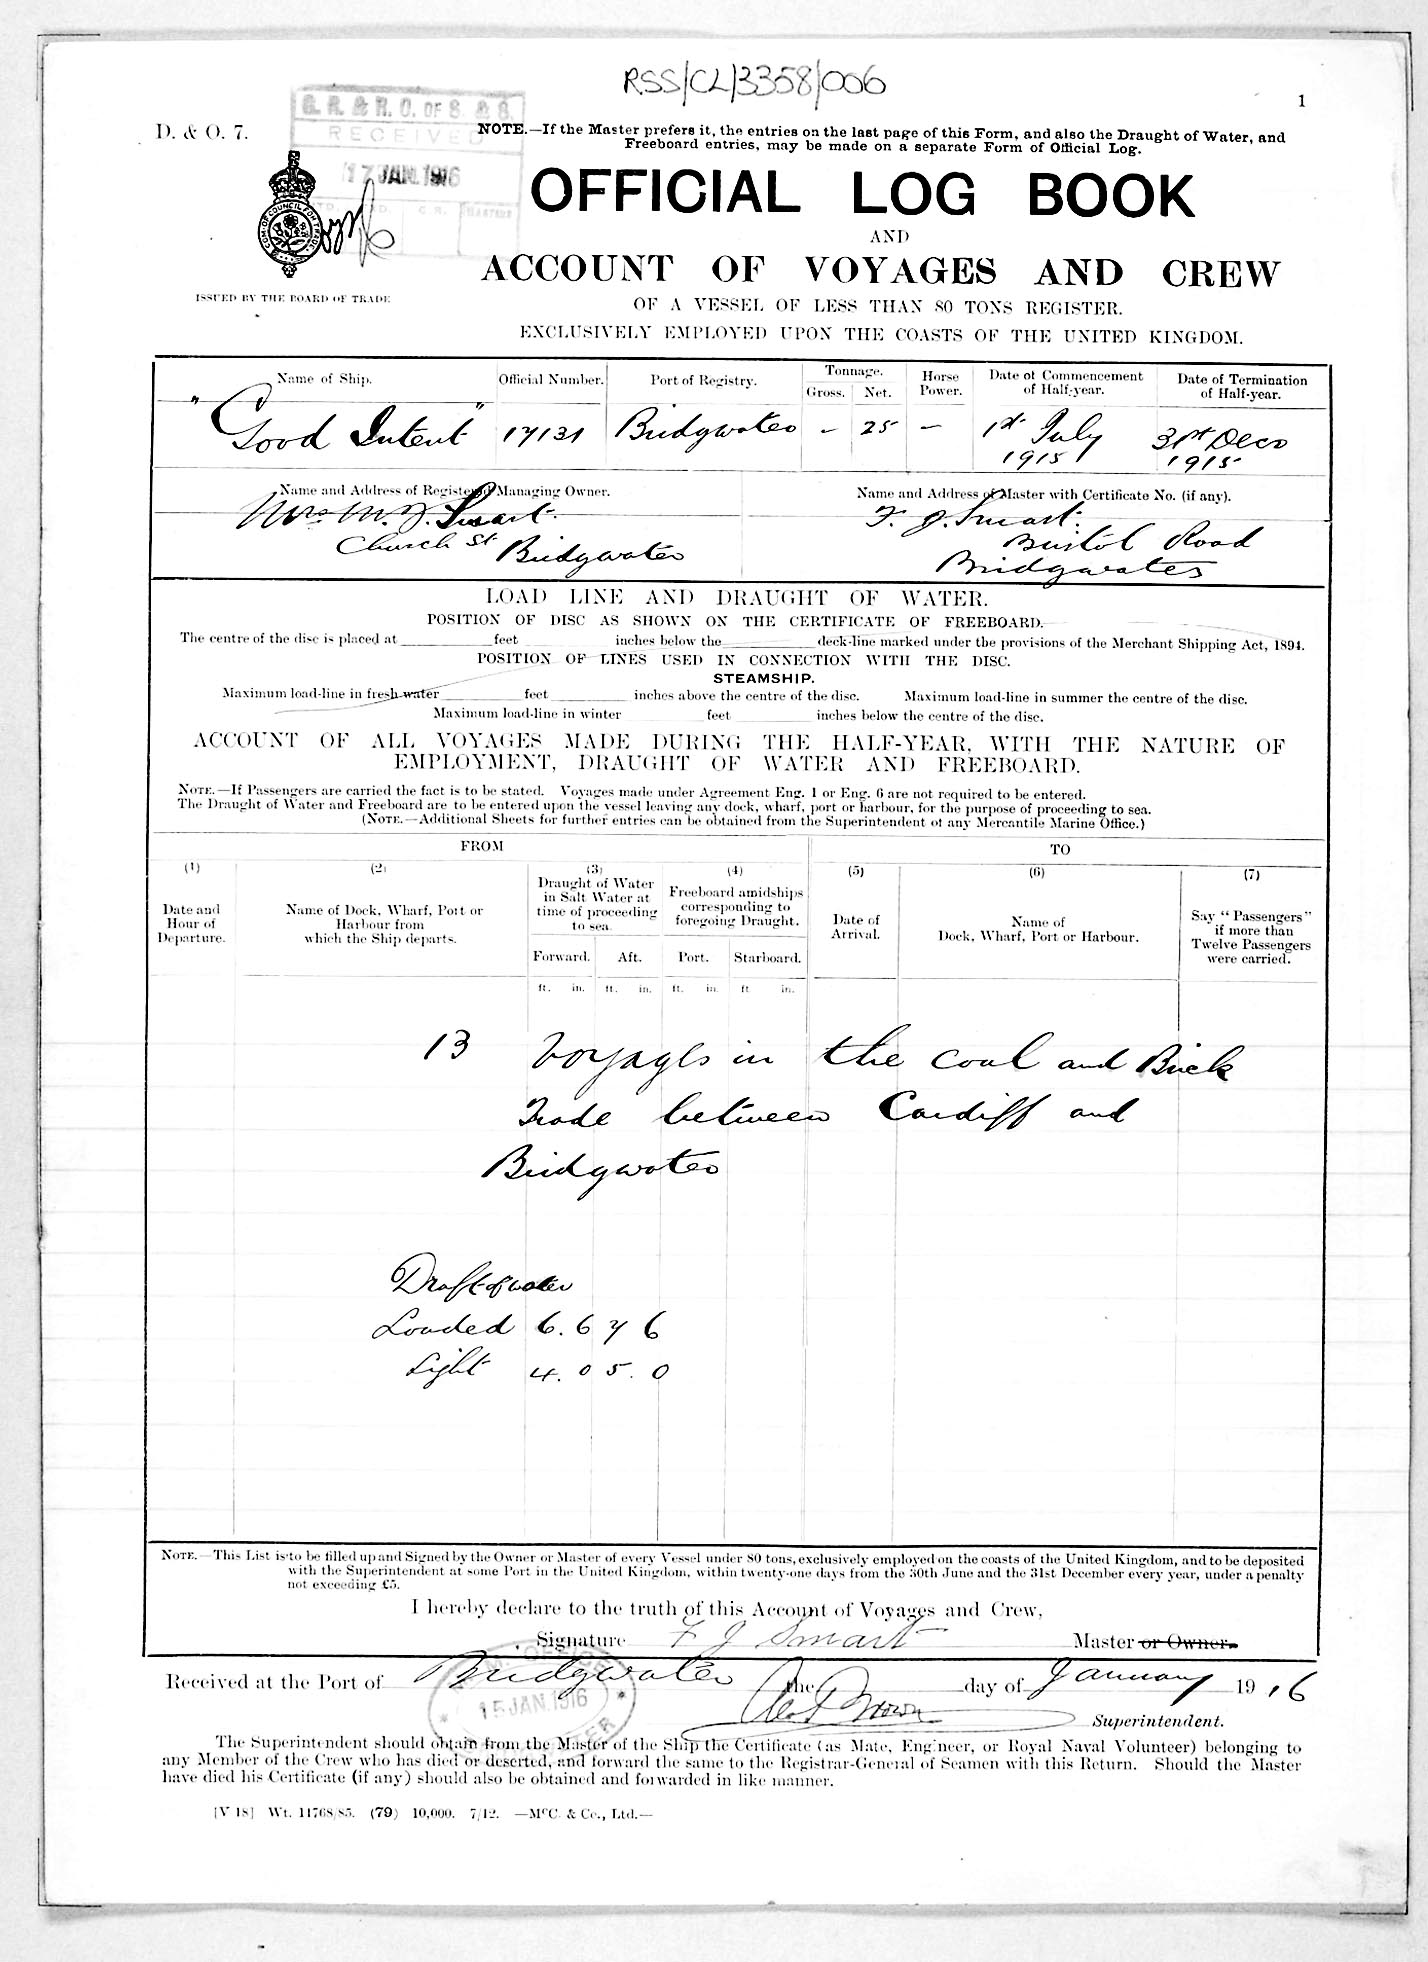 RSS/CL/3358/006
1
D. & O. 7.
G. R. & R. O. OF S. & S.
RECEIVED
17 JAN. 1916
C.R.
NOTE.—If the Master prefers it, the entries on the last page of this Form, and also the Draught of Water, and
Freeboard entries, may be made on a separate Form of Official Log.
OFFICIAL LOG BOOK
AND
ACCOUNT OF VOYAGES AND CREW
OF A VESSEL OF LESS THAN 80 TONS REGISTER.
EXCLUSIVELY EMPLOYED UPON THE COASTS OF THE UNITED KINGDOM.
ISSUED BY THE BOARD OF TRADE
Name of Ship. Official Number. Port of Registry. Tonnage. Gross. Net. Horse Power. Date of Commencement of Half-year. Date of Termination of Half-year.
"Good Intent" 17131 Bridgwater – 25 – 1st July 1915 31st Decr 1915
Name and Address of Registered Managing Owner.
Mrs M. J. Smart.
Church St Bridgwater
Name and Address of Master with Certificate No. (if any).
F. J. Smart.
Bristol Road
Bridgwater
LOAD LINE AND DRAUGHT OF WATER.
POSITION OF DISC AS SHOWN ON THE CERTIFICATE OF FREEBOARD.
The centre of the disc is placed at feet inches below the deck-line marked under the provisions of the Merchant Shipping Act, 1894.
POSITION OF LINES USED IN CONNECTION WITH THE DISC.
STEAMSHIP.
Maximum load-line in fresh water feet inches above the centre of the disc. Maximum load-line in summer the centre of the disc.
Maximum load-line in winter feet inches below the centre of the disc.
ACCOUNT OF ALL VOYAGES MADE DURING THE HALF-YEAR, WITH THE NATURE OF
EMPLOYMENT, DRAUGHT OF WATER AND FREEBOARD.
NOTE.—If Passengers are carried the fact is to be stated. Voyages made under Agreement Eng. 1 or Eng. 6 are not required to be entered.
The Draught of Water and Freeboard are to be entered upon the vessel leaving any dock, wharf, port or harbour, for the purpose of proceeding to sea.
(NOTE.—Additional Sheets for further entries can be obtained from the Superintendent of any Mercantile Marine Office.)
FROM TO
(1) (2) (3) (4) (5) (6) (7)
Date and Hour of Departure.
Name of Dock, Wharf, Port or Harbour from which the Ship departs.
Draught of Water in Salt Water at time of proceeding to sea.
Freeboard amidships corresponding to foregoing Draught.
Date of Arrival.
Name of Dock, Wharf, Port or Harbour.
Say "Passengers" if more than Twelve Passengers were carried.
Forward. Aft. Port. Starboard.
ft. in. ft. in. ft. in. ft in.
13 Voyages in the coal and Brick
Trade between Cardiff and
Bridgwater
Draft of water
Loaded 6. 6 7 6
Light 4. 0 5. 0
NOTE.—This List is to be filled up and Signed by the Owner or Master of every Vessel under 80 tons, exclusively employed on the coasts of the United Kingdom, and to be deposited
with the Superintendent at some Port in the United Kingdom, within twenty-one days from the 30th June and the 31st December every year, under a penalty
not exceeding £5.
I hereby declare to the truth of this Account of Voyages and Crew,
Signature F J Smart Master or Owner.
Received at the Port of Bridgwater the day of January 1916
15 JAN. 1916
Brown Superintendent.
The Superintendent should obtain from the Master of the Ship the Certificate (as Mate, Engineer, or Royal Naval Volunteer) belonging to
any Member of the Crew who has died or deserted, and forward the same to the Registrar-General of Seamen with this Return. Should the Master
have died his Certificate (if any) should also be obtained and forwarded in like manner.
[V 18] Wt. 11768/85. (79) 10,000. 7/12. —McC. & Co., Ltd.—